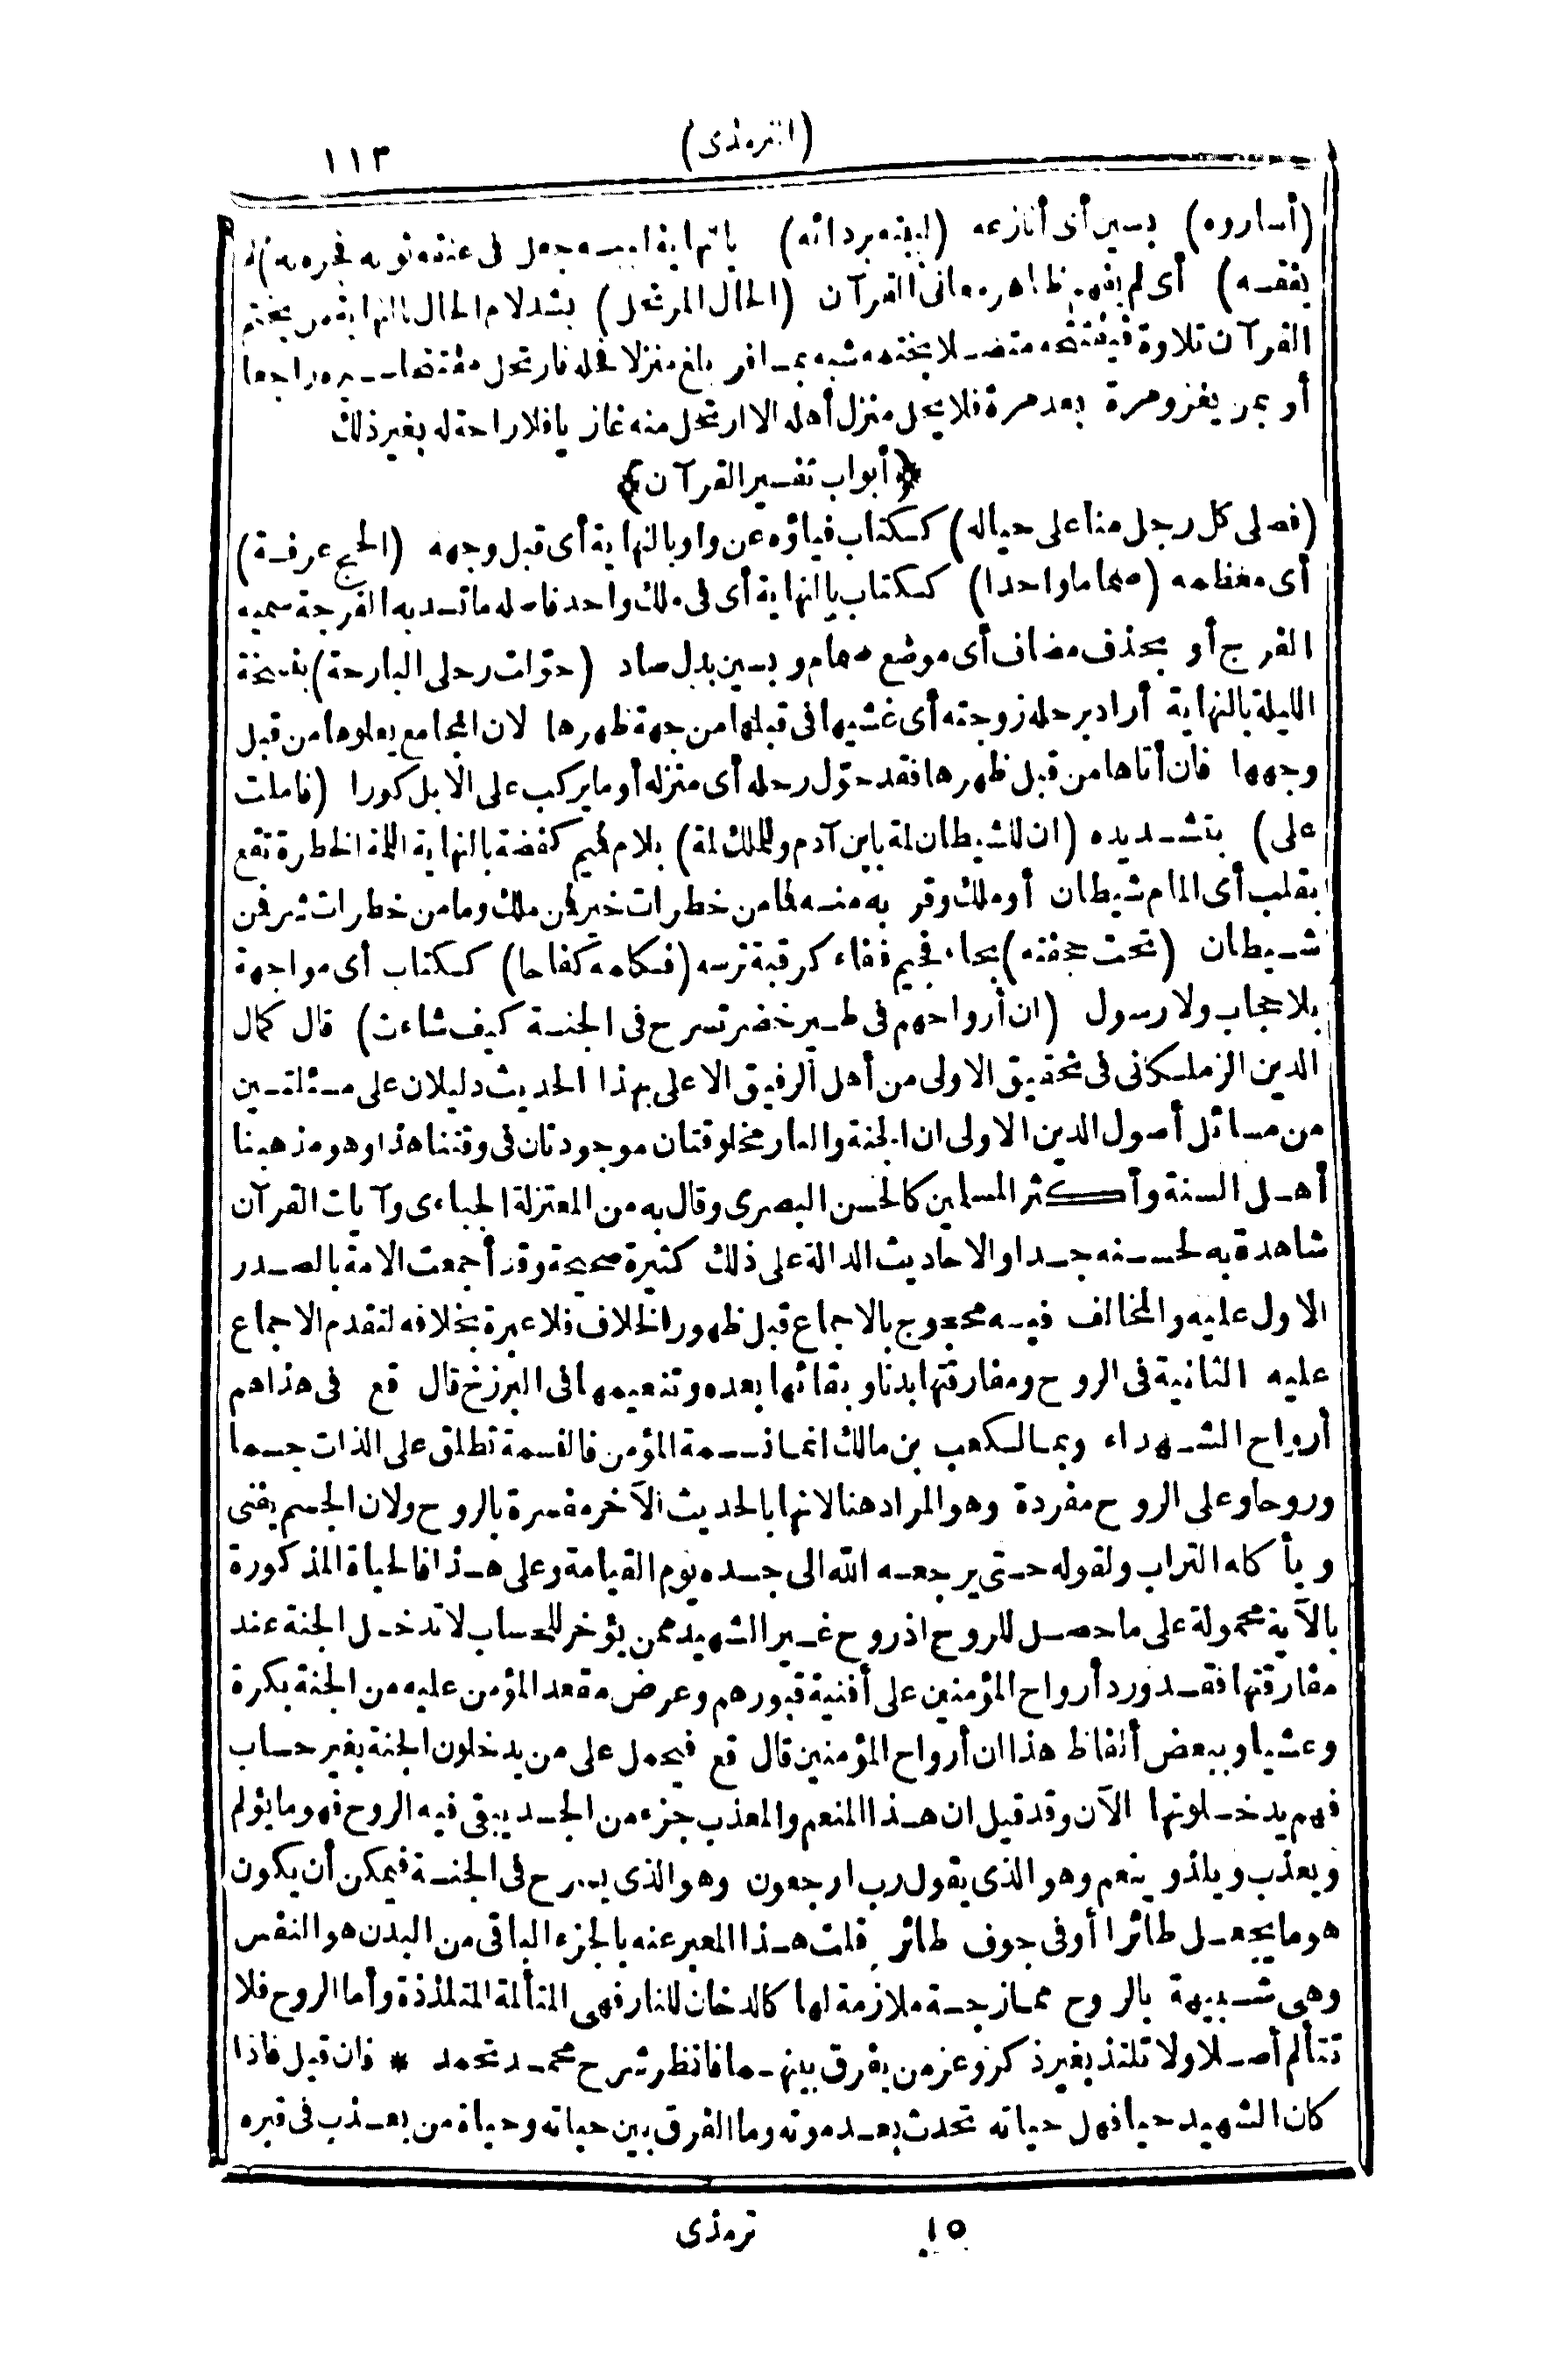 (الترمذى) ١١٣
(أساروه) بسين أى أنازعه (لببته بردائه) بالنهاية لببه جعل فى عنقه ثوبه فجره به (لم
يفقه) أى لم يفهم ظاهر معانى القرآن (الحال المرتحل) بشد لام الحال بالنهاية من يختم
القرآن تلاوة فيفتتحه متصلا بختمه شبه بمسافر بلغ منزلا فحله فارتحل مفتتحا سيره راجعا
أو بمن يغزو مرة بعد مرة فلا يحل منزل أهله الا ارتحل منه غاز يا فلا راحة له بغير ذلك
﴿أبواب تفسير القرآن﴾
(فصلى كل رجل منا على حياله) ككتاب فياؤه عن واو بالنهاية أى قبل وجهه (الحج عرفة)
أى معظمه (صماما واحدا) ككتاب بالنهاية أى فى ملك واحد فأصله ما تسد به الفرجة سمى به
الفرج أو بحذف مضاف أى موضع صمام و بسين بدل صاد (حوّلت رحلى البارحة) بنسخة
الليلة بالنهاية أراد برحله زوجته أى غشيها فى قبلها من جهة ظهرها لان المجامع يعلوها من قبل
وجهها فان أتاها من قبل ظهرها فقد حوّل رحله أى منزله أو ما يركب على الابل كورا (فاملت
على) بتشديده (ان للشيطان لمة باين آدم وللملك لمة) بلام فميم كفضة بالنهاية اللمة الخطرة تقع
بقلب أى المام شيطان أو ملك وقر به منه فما من خطرات خير فمن ملك وما من خطرات شر فمن
شيطان (تحت حجفته) بحاء فجيم ففاء كرقبة ترسه (فكلمه كفاحا) ككتاب أى مواجهة
بلا حجاب ولا رسول (ان أرواحهم فى طير خضر تسرح فى الجنة كيف شاءت) قال كمال
الدين الزملكانى فى تحقيق الاولى من أهل الرفيق الاعلى بهذا الحديث دليلان على مسئلتين
من مسائل أصول الدين الاولى ان الجنة والنار مخلوقتان موجودتان فى وقتنا هذا وهو مذهبنا
أهل السنة وأكثر المسلمين كالحسن البصرى وقال به من المعتزلة الجباءى وآيات القرآن
شاهدة به لحسنه جدا والاحاديث الدالة على ذلك كثيرة صحيحة وقد أجمعت الامة بالصدر
الاول عليه والمخالف فيه محجوج بالاجماع قبل ظهور الخلاف فلا عبرة بخلافه لتقدم الاجماع
عليه الثانية فى الروح ومفارقتها بدنا وبقائها بعده وتنعيمها فى البرزخ قال قع فى هذا هم
أرواح الشهداء وبما لكعب بن مالك انما نسمة المؤمن فالنسمة تطلق على الذات جسما
وروحا وعلى الروح مفردة وهو المراد هنا لانها بالحديث الآخر مفسرة بالروح ولان الجسم يفنى
و يأكله التراب ولقوله حتى يرجعه الله الى جسده يوم القيامة وعلى هذا فالحياة المذكورة
بالآية محمولة على ما حصل للروح اذ روح غير الشهيد ممن يؤخر للحساب لا تدخل الجنة عند
مفارقتها فقد ورد أرواح المؤمنين على أفنية قبورهم وعرض مقعد المؤمن عليه من الجنة بكرة
وعشيا وببعض ألفاظ هذا ان أرواح المؤمنين قال قع فيحمل على من يدخلون الجنة بغير حساب
فهم يدخلونها الآن وقد قيل ان هذا المنعم والمعذب جزء من الجسد يبقى فيه الروح فهو ما يؤلم
ويعذب و يلذو ينعم وهو الذى يقول رب ارجعون وهو الذى يسرح فى الجنة فيمكن أن يكون
هو ما يجعل طائرا أو فى جوف طائر قلت هذا المعبر عنه بالجزء الباقى من البدن هو النفس
وهى شبيهة بالروح ممازجة ملازمة لها كالدخان للنار فهى المتألمة المتلذذة وأما الروح فلا
تتألم أصلا ولا تلتذ بغير ذكر وعز من يفرق بينهما فانظر شرح محمد تحمد * فان قيل فاذا
كان الشهيد حيا فهل حياته تحدث بعد موته وما الفرق بين حياته وحياة من يعذب فى قبره
١٥ ترمذى